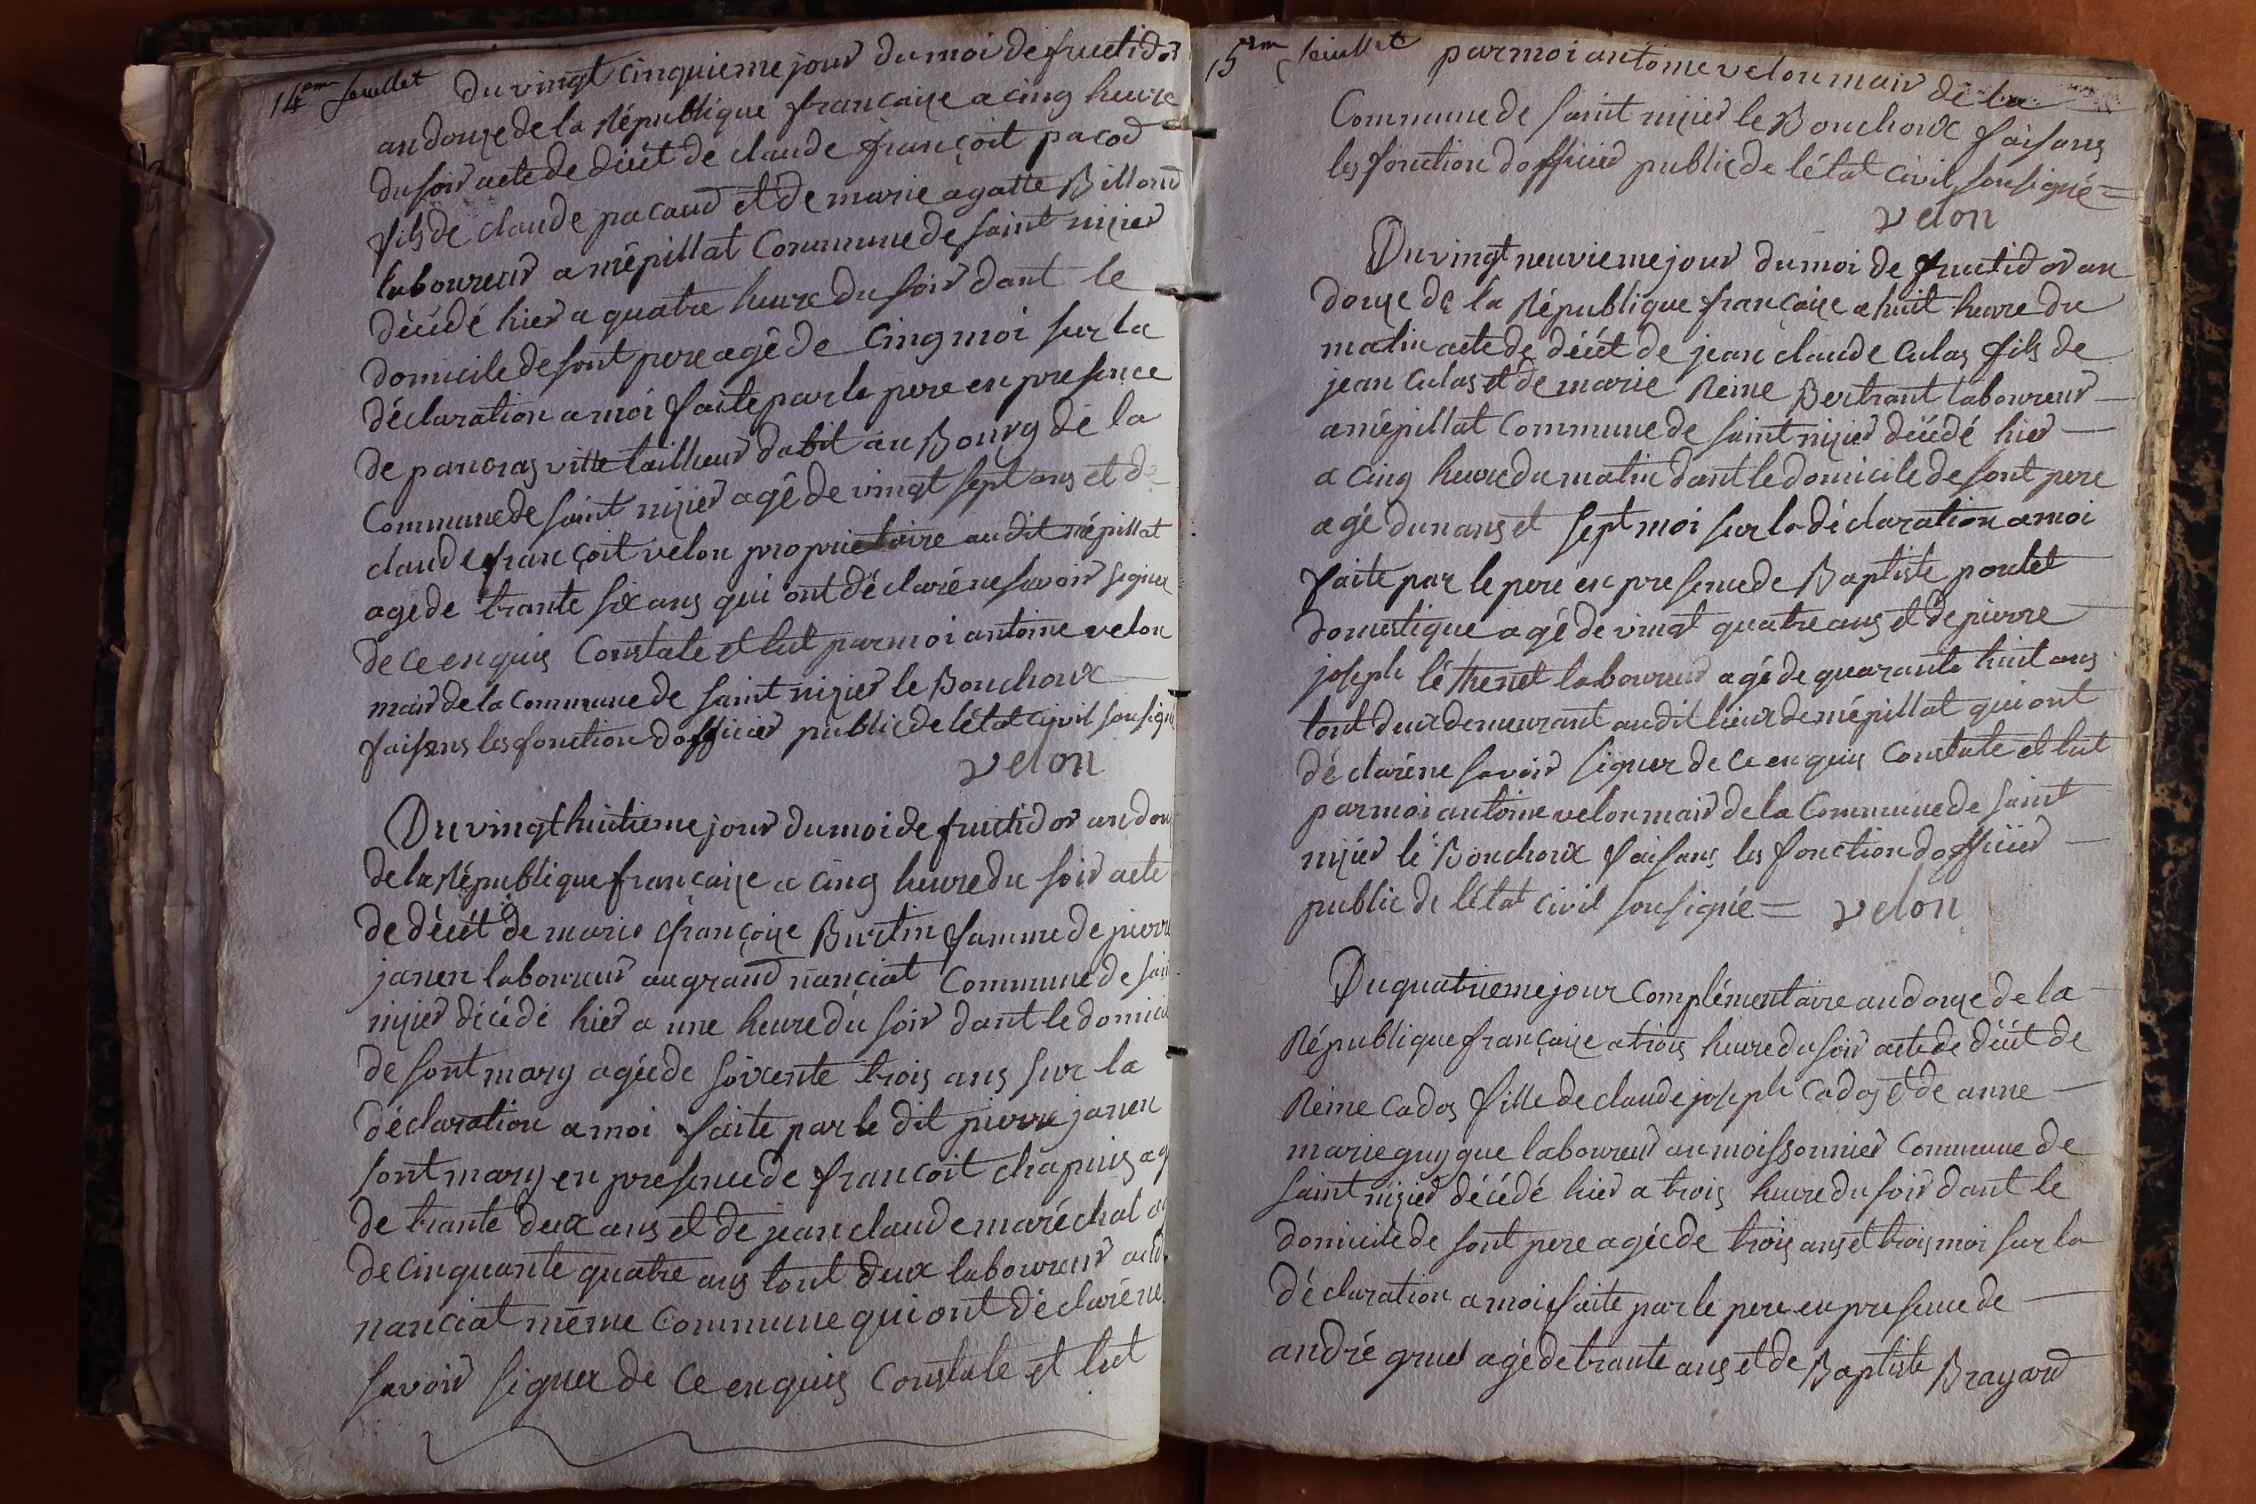 14eme feuillet
Du vingt cinquieme jour du moi de fructidor
an douze de la République francaize a cinq heure
du soir acte de décét de claude françoit pacod
fils de claude pacaud et de marie agatte Billoud
laboureur a mépillat Commune de saint nizier
décédé hier a quatre heure du soir dant le
domicile de sont pere agé de cinq moi sur la
déclaration a moi faite par le pere en presence
de pancras vitte tailleur dabit au Bourg de la
Commune de saint nizier agé de vingt sept ans et de
claude françoit velon proprietaire au dit mépillat
agé de trante six ans qui ont déclaré ne savoir signer
de ce enquis Constate et lut par moi antoine velon
mair de la Commune de saint nizier le Bouchoux
faisans les fonction dofficier public de létat civil sousigné
velon
Du vingt huitieme jour du moi de fructidor an dou
de la République françaize a cinq heure du soir acte
de décét de marie françoize Burtin famme de pierre
janen laboureur au grand nanciat Commune de sain
nizier décédé hier a une heure du soir dant le domici
de sont mary agée de soixente trois ans sur la
déclaration a moi faite par le dit pierre janen
sont mary en presence de francoit chapuis ag
de trante deux ans et de jean claude maréchal ag
de cinquante quatre ans tout deux laboureur audi
nanciat même Commune qui ont déclaré ne
savoir signer de ce enquis Constate et lut
15eme feuillet
par moi antoine velon mair de la
Commune de saint nizier le Bouchoux faisans
les fonction dofficier public de létat civil sousigné =
velon
Du vingt neuvieme jour du moi de fructidor an
douze de la République françaize a huit heure du
matin acte de décét de jean claude Culas fils de
jean Culas et de marie Reine Bertrant laboureur
a mépillat Commune de saint nizier décédé hier
a cinq heure du matin dant le domicile de sont pere
agé dun ans et sept moi sur la déclaration a moi
faite par le pere en presence de Baptiste poulet
domestique agé de vingt quatre ans et de pierre
joseph léthenet laboureur agé de quarante huit ans
tout deux demeurant au dit lieux de mépillat qui ont
déclaré ne savoir signer de ce enquis Constate et lut
par moi antoine velon mair de la Commune de saint
nizier le Bouchoux faisans les fonction dofficier
public de létat civil sousignée = velon
Du quatrieme jour Complémentaire an douze de la
République françaize a trois heure du soir acte de décét de
Reine Cados fille de claude joseph Cados et de anne
marie guyque laboureur au moissonnier Commune de
saint nizier décédé hier a trois heure du soir dant le
domicile de sont pere agée de trois ans et trois moi sur la
déclaration a moi faite par le pere en presence de
andré gruel agé de trante ans et de Baptiste Brayard